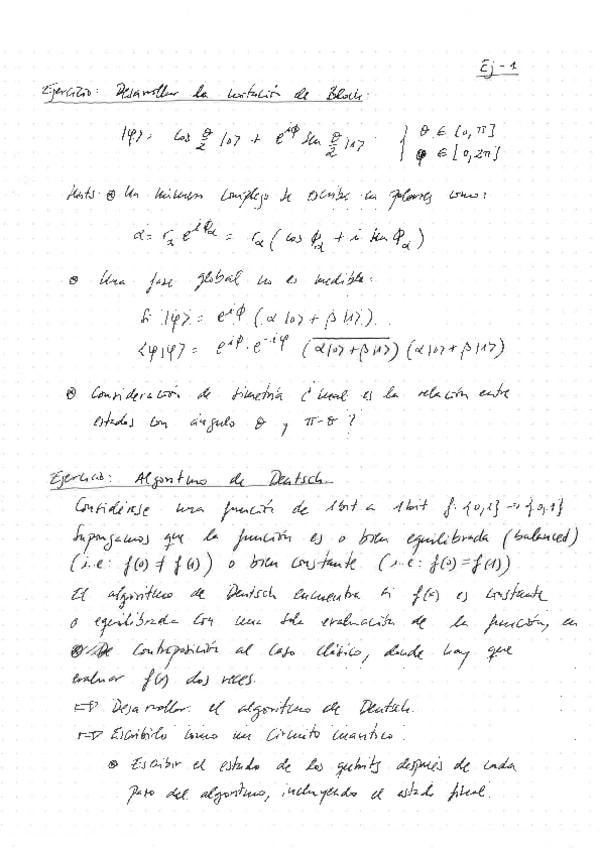 Ej-1
Ejercicio: Desarrollar la notación de Bloch.
|φ> = cos θ/2 |0> + e^{iϕ} sen θ/2 |1> { θ ∈ [0, π]
φ ∈ [0, 2π]
Hints: ⊙ Un número complejo se escribe en polares como:
α = r_α e^{iϕ_α} = r_α ( cos ϕ_α + i sen ϕ_α )
⊙ Una fase global no es medible.
Si |φ> = e^{iϕ} ( α |0> + β |1> ).
<φ|φ> = e^{iφ} · e^{-iφ} (\overline{α|0> + β|1>}) (α|0> + β|1>)
⊙ Consideración de simetría ¿ Cual es la relación entre
estados con ángulo θ y π-θ ?
Ejercicio: Algoritmo de Deutsch
Considérese una función de 1bit a 1bit f: {0,1} → {0,1}
Supongamos que la función es o bien equilibrada (balanced)
(i.e: f(0) ≠ f(1)) o bien constante (i.e: f(0) = f(1))
El algoritmo de Deutsch encuentra si f(x) es constante
o equilibrada con una sola evaluación de la función, en
contraposición al caso clásico, donde hay que
evaluar f(x) dos veces.
⇒ Desarrollar el algoritmo de Deutsch.
⇒ Escribirlo como un circuito cuántico.
⊙ Escribir el estado de los qubits después de cada
paso del algoritmo, incluyendo el estado final.